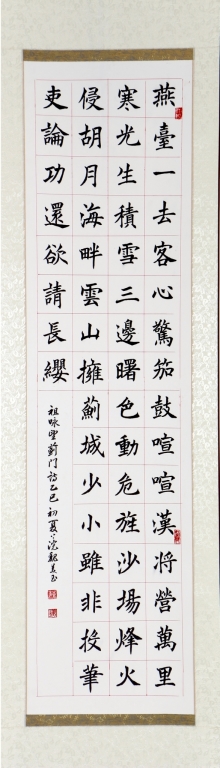 燕臺一去客心驚笳鼓喧喧漢將營萬里
寒光生積雪三邊曙色動危旌沙場烽火
侵胡月海畔雲山擁薊城少小雖非投筆
吏論功還欲請長纓
祖咏望薊门詩乙巳初夏